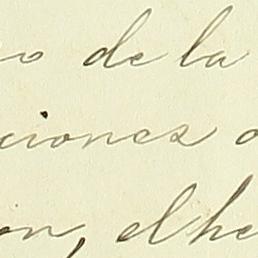 o de la
ciones
on, el he